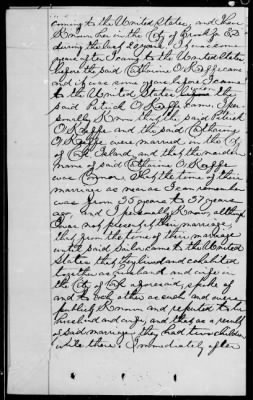 coming to the United States, and I have
known her in the City of Brooklyn
during the last 20 years. I
years after I came to the United States
before the said Catharine O'Keeffe came
and it was some years before I came
to the United States the
said Patrick O'Keeffe came. I per-
sonally know that the said Patrick
O'Keeffe and the said Catharine
O'Keeffe were married in the City
of Cork Ireland, and that the maiden
name of said Catharine O'Keeffe
was Connor. That the time of their
marriage as near as I can remember
was from 35 years to 37 years
ago, and I personally know, although
I was not present at their marriage
that from the time of their marriage
until said sailor came to the United
States that they lived and cohabited
together as husband and wife in
the City of Cork aforesaid, spoke of
and to each other as such and were
publicly known and reputed to be
husband and wife, and that as a result
of said marriage they had two children
while there. Immediately after